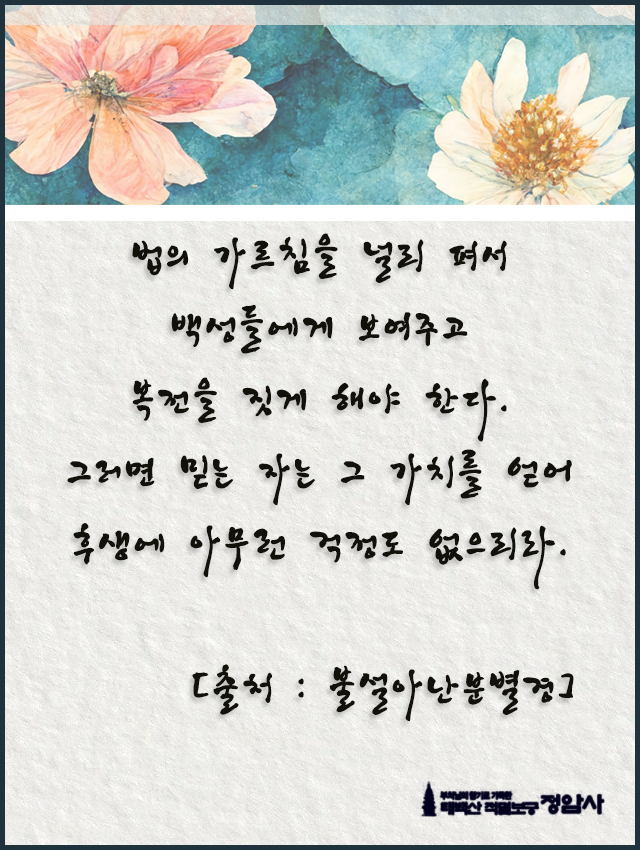 법의 가르침을 널리 펴서
백성들에게 보여주고
복전을 짓게 해야 한다.
그러면 믿는 자는 그 가치를 얻어
후생에 아무런 걱정도 없으리라.
[출처 : 불설아난분별경]
태백산 적멸보궁 정암사